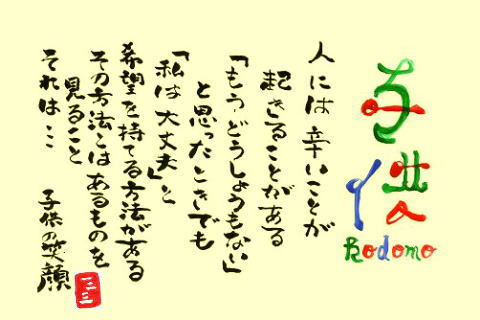 子供
Kodomo
人には辛いことが
起きることがある
「もうどうしょうもない」
と思ったときでも
「私は大丈夫」と
希望を持てる方法がある
その方法とはあるものを
見ること
それは…
子供の笑顔
一二三